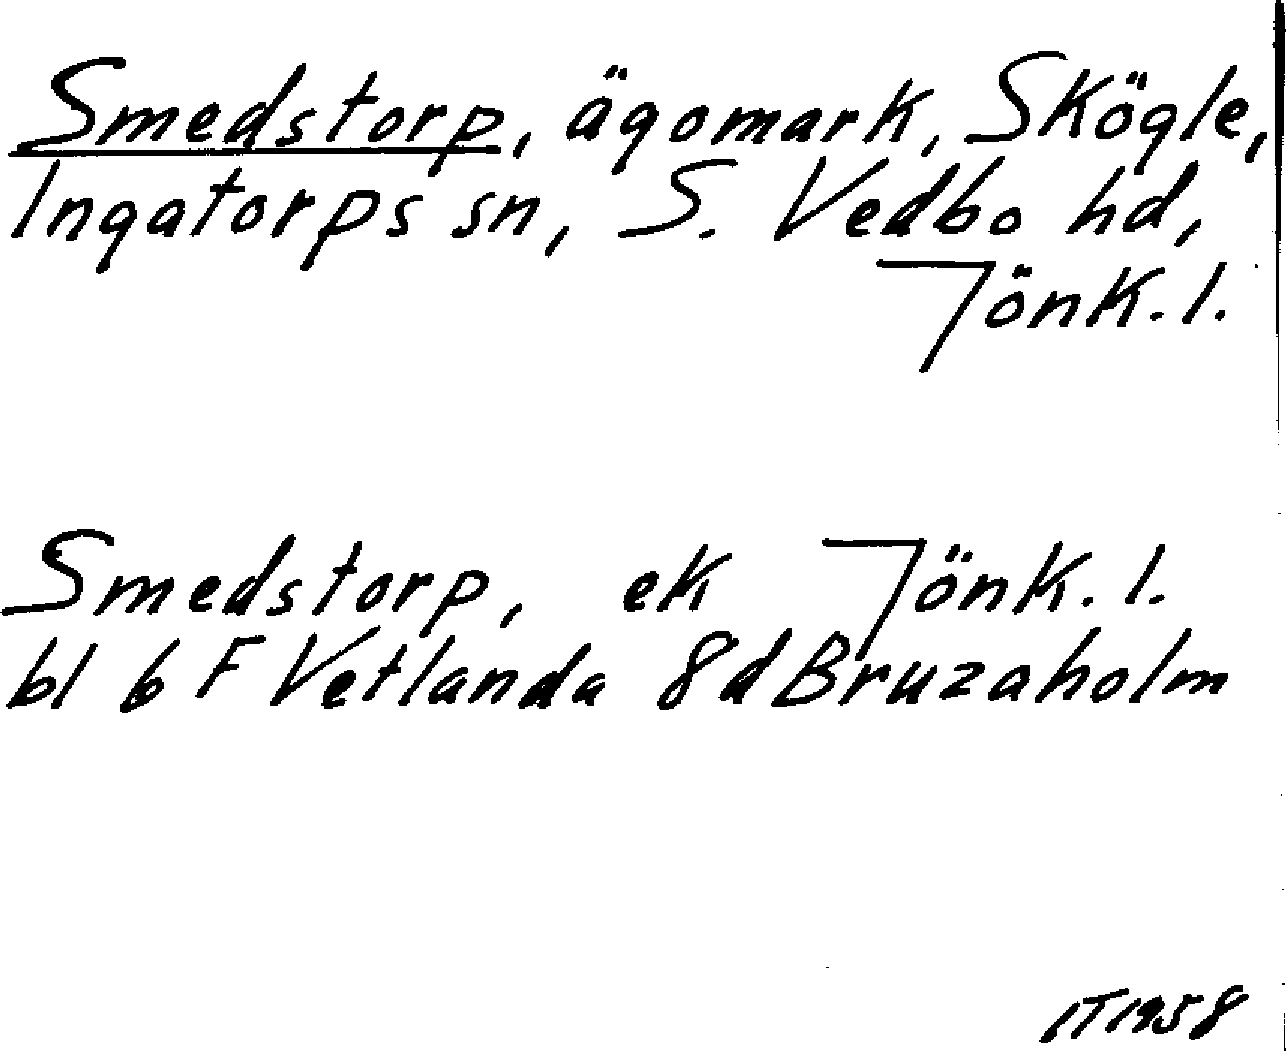 Smedstorp, ägomark, Skögle,
Ingatorps sn, S. Vedbo hd,
Jönk. l.
Smedstorp, ek Jönk. l.
bl 6 F Vetlanda 8d Bruzaholm
IT1958